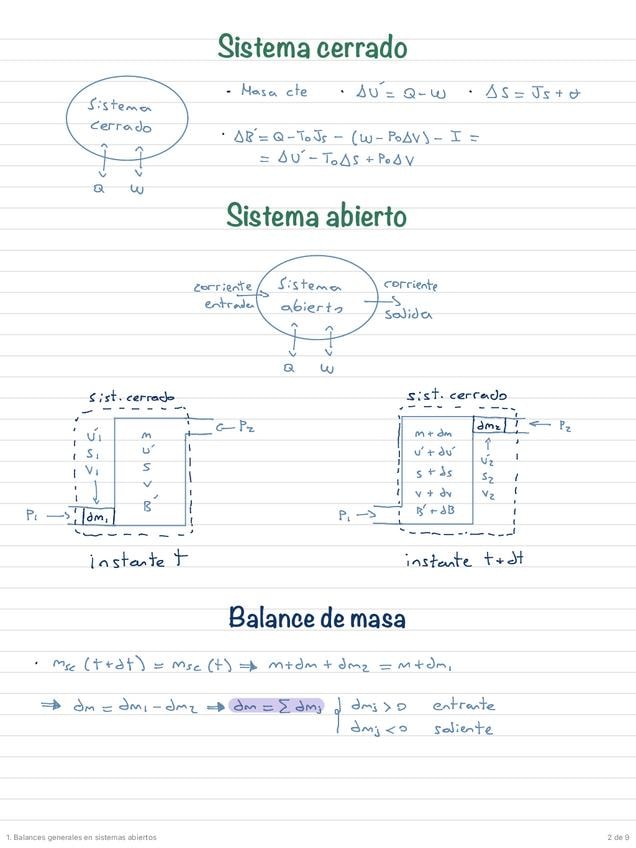 Sistema cerrado
Sistema cerrado
Q W
• Masa cte • ΔU' = Q - W • ΔS = Js + σ
• ΔB' = Q - T₀Js - (W - P₀ΔV) - I =
= ΔU' - T₀ΔS + P₀ΔV
Sistema abierto
corriente entrada
Sistema abierto
corriente salida
Q W
sist. cerrado
U'₁
S₁
V₁
dm₁
m
U'
S
V
B'
P₁
P₂
instante t
sist. cerrado
m + dm
U' + dU'
S + dS
V + dV
B' + dB
dm₂
U'₂
S₂
V₂
P₁
P₂
instante t+dt
Balance de masa
• msc (t+dt) = msc (t) ⇒ m+dm + dm₂ = m+dm₁
⇒ dm = dm₁ - dm₂ ⇒ dm = Σ dmj { dmj > 0 entrante
dmj < 0 saliente
1. Balances generales en sistemas abiertos
2 de 9